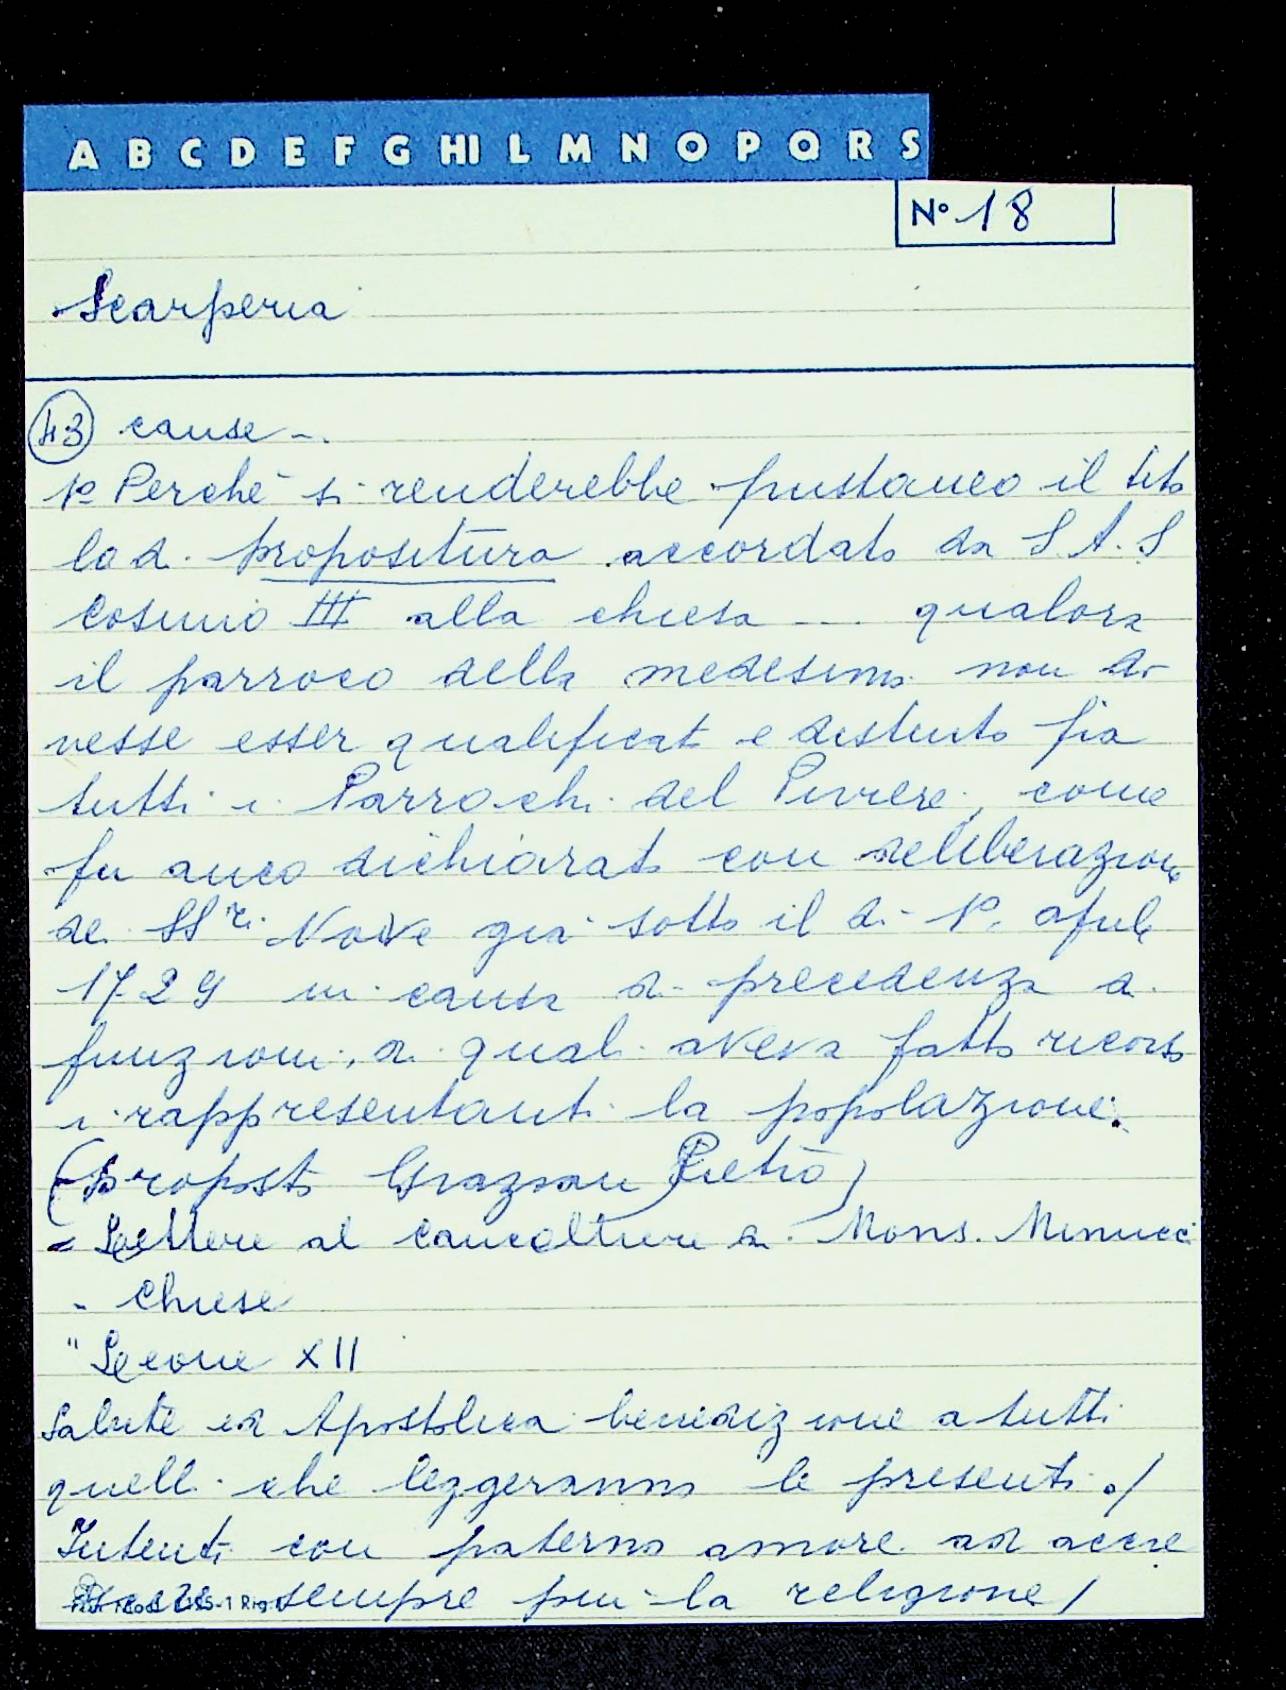 A B C D E F G HI L M N O P Q R S
N° 18
Scarperia
43 cause -.
1° Perché si renderebbe frustaneo il tito
lo di propositura accordato da S.A.S
Cosimo III alla chiesa ... qualora
il parroco della medesima non do-
vesse esser qualificato e distinto fra
tutti i Parrochi del Piviere, come
fu anco dichiarato con deliberazione
de SS.ri Nove già sotto il dì 1° aprile
1729 in causa di precedenza di
funzioni, a quali aveva fatto ricorso
i rappresentanti la popolazione.
(Proposto Graziani Pietro)
= Lettere al cancelliere di Mons. Minucci
- Chiese
" Leone XII
Salute ed Apostolica benedizione a tutti
quelli che leggeranno le presenti./
Intenti con paterno amore ad accre
sempre più la religione/